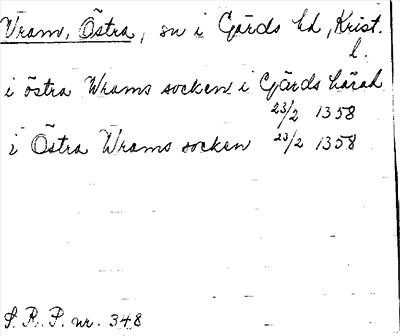 Vram, Östra, sn i Gärds hd, Krist.
l.
i östra Wrams socken i Gärds härad
23/2 1358
i Östra Wrams socken 23/2 1358
S. R. P. nr. 348